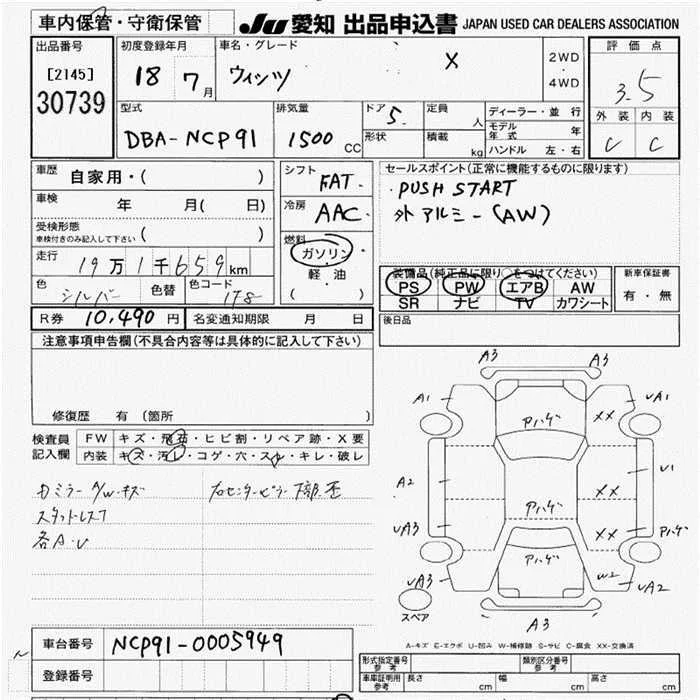 車内保管・守衛保管
JU 愛知 出品申込書 JAPAN USED CAR DEALERS ASSOCIATION
出品番号
[2145]
30739
初度登録年月
18 7月
車名・グレード
ウィッツ X
2WD
・
4WD
評価点
3.5
外装 内装
C C
型式
DBA-NCP91
排気量
1500 CC
ドア 5
形状
定員 人
積載 kg
ディーラー・並行
モデル年式 年
ハンドル 左・右
車歴
自家用・( )
車検 年 月( 日)
受検形態
車検付きのみ記入して下さい ( )
走行
19万1千659km
色 シルバー 色替 色コード 1F8
シフト
FAT
冷房
AAC
燃料
ガソリン
・
軽油
( )
セールスポイント(正常に機能するものに限ります)
・PUSH START
外アルミー(AW)
装備品(純正品に限り○をつけてください)
PS PW エアB AW
SR ナビ TV カワシート
新車保証書
有・無
R券 10,490円 名変通知期限 月 日
後日品
注意事項申告欄(不具合内容等は具体的に記入して下さい)
修復歴 有(箇所 )
検査員
記入欄
FW キズ・飛石・ヒビ割・リペア跡・X要
内装 キズ・汚レ・コゲ・穴・スレ・キレ・破レ
スタットレス7
各A・U
A3 A3
A1 UA1
アハゲ XX
A2 U1
アハゲ XX
UA3 XX アハゲ
アハゲ
UA3 W2 UA2
A3
スペア
A-キズ E-エクボ U-凹み W-補修跡 S-サビ C-腐食 XX-交換済
車台番号 NCP91-0005949
登録番号
形式指定番号
参考
類別区分番号
参考
車庫証明用
参考
長さ cm 幅 cm 高さ cm